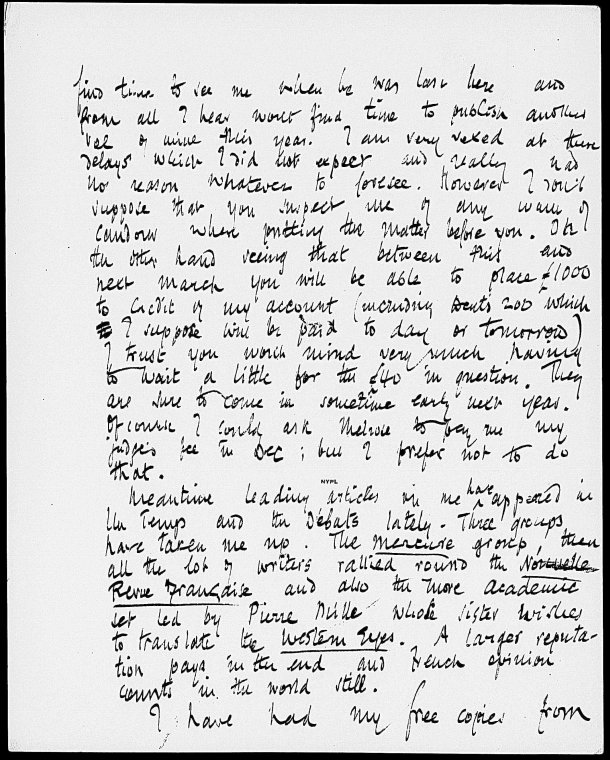 find time to see me when he was last here and
from all I hear wont find time to publish another
vol of mine this year. I am very vexed at these
delays which I did not expect and really had
no reason whatever to foresee. However I don't
suppose that you suspect me of any want of
candour when putting the matter before you. On
the other hand seeing that between this and
next march you will be able to place £1000
to credit of my account (including Dents 200 which
I suppose will be paid to day or tomorrow)
I trust you won't mind very much having
to wait a little for the £40 in question. They
are sure to come in sometime early next year.
Of course I could ask Melrose to pay me my
judge's fee in Dec; but I prefer not to do
that.
NYPL
Meantime leading articles on me have appeared in
Le Temps and the Débats lately. Three groups
have taken me up. The Mercure group, then
all the lot of writers rallied round the Nouvelle
Revue Française and also the more academic
set led by Pierre Mille whose sister wishes
to translate the Western Eyes. A larger reputa-
tion pays in the end and French opinion
counts in the world still.
I have had my free copies from